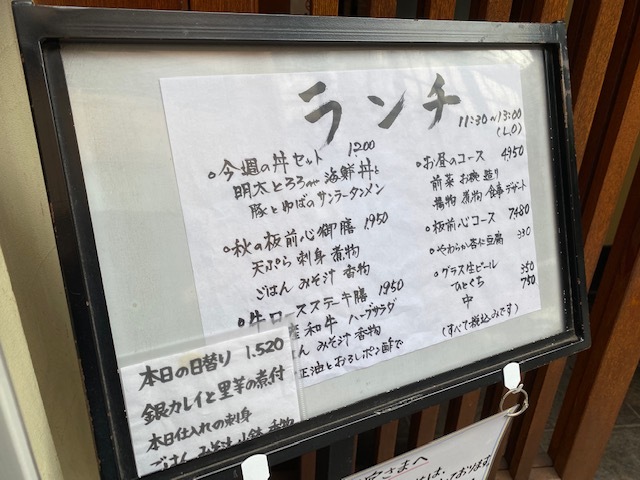 ランチ
11:30~13:00
(L.O)
○今週の丼セット 1200
明太とろろが海鮮丼と
豚とゆばのサンラータンメン
○秋の板前心御膳 1950
天ぷら 刺身 煮物
ごはん みそ汁 香物
○牛ロースステーキ膳 1950
産和牛 ハーブサラダ
ん みそ汁 香物
正油とおろしポン酢で
○お昼のコース 4950
前菜 お椀 造り
揚物 煮物 食事 デザート
○板前心コース 7480
○やわらか杏仁豆腐 330
○グラス生ビール
ひとくち 350
中 750
(すべて税込みです)
本日の日替り 1.520
銀カレイと里芋の煮付
本日仕入れの刺身
ごはん みそ汁 小鉢 香物
さまへ